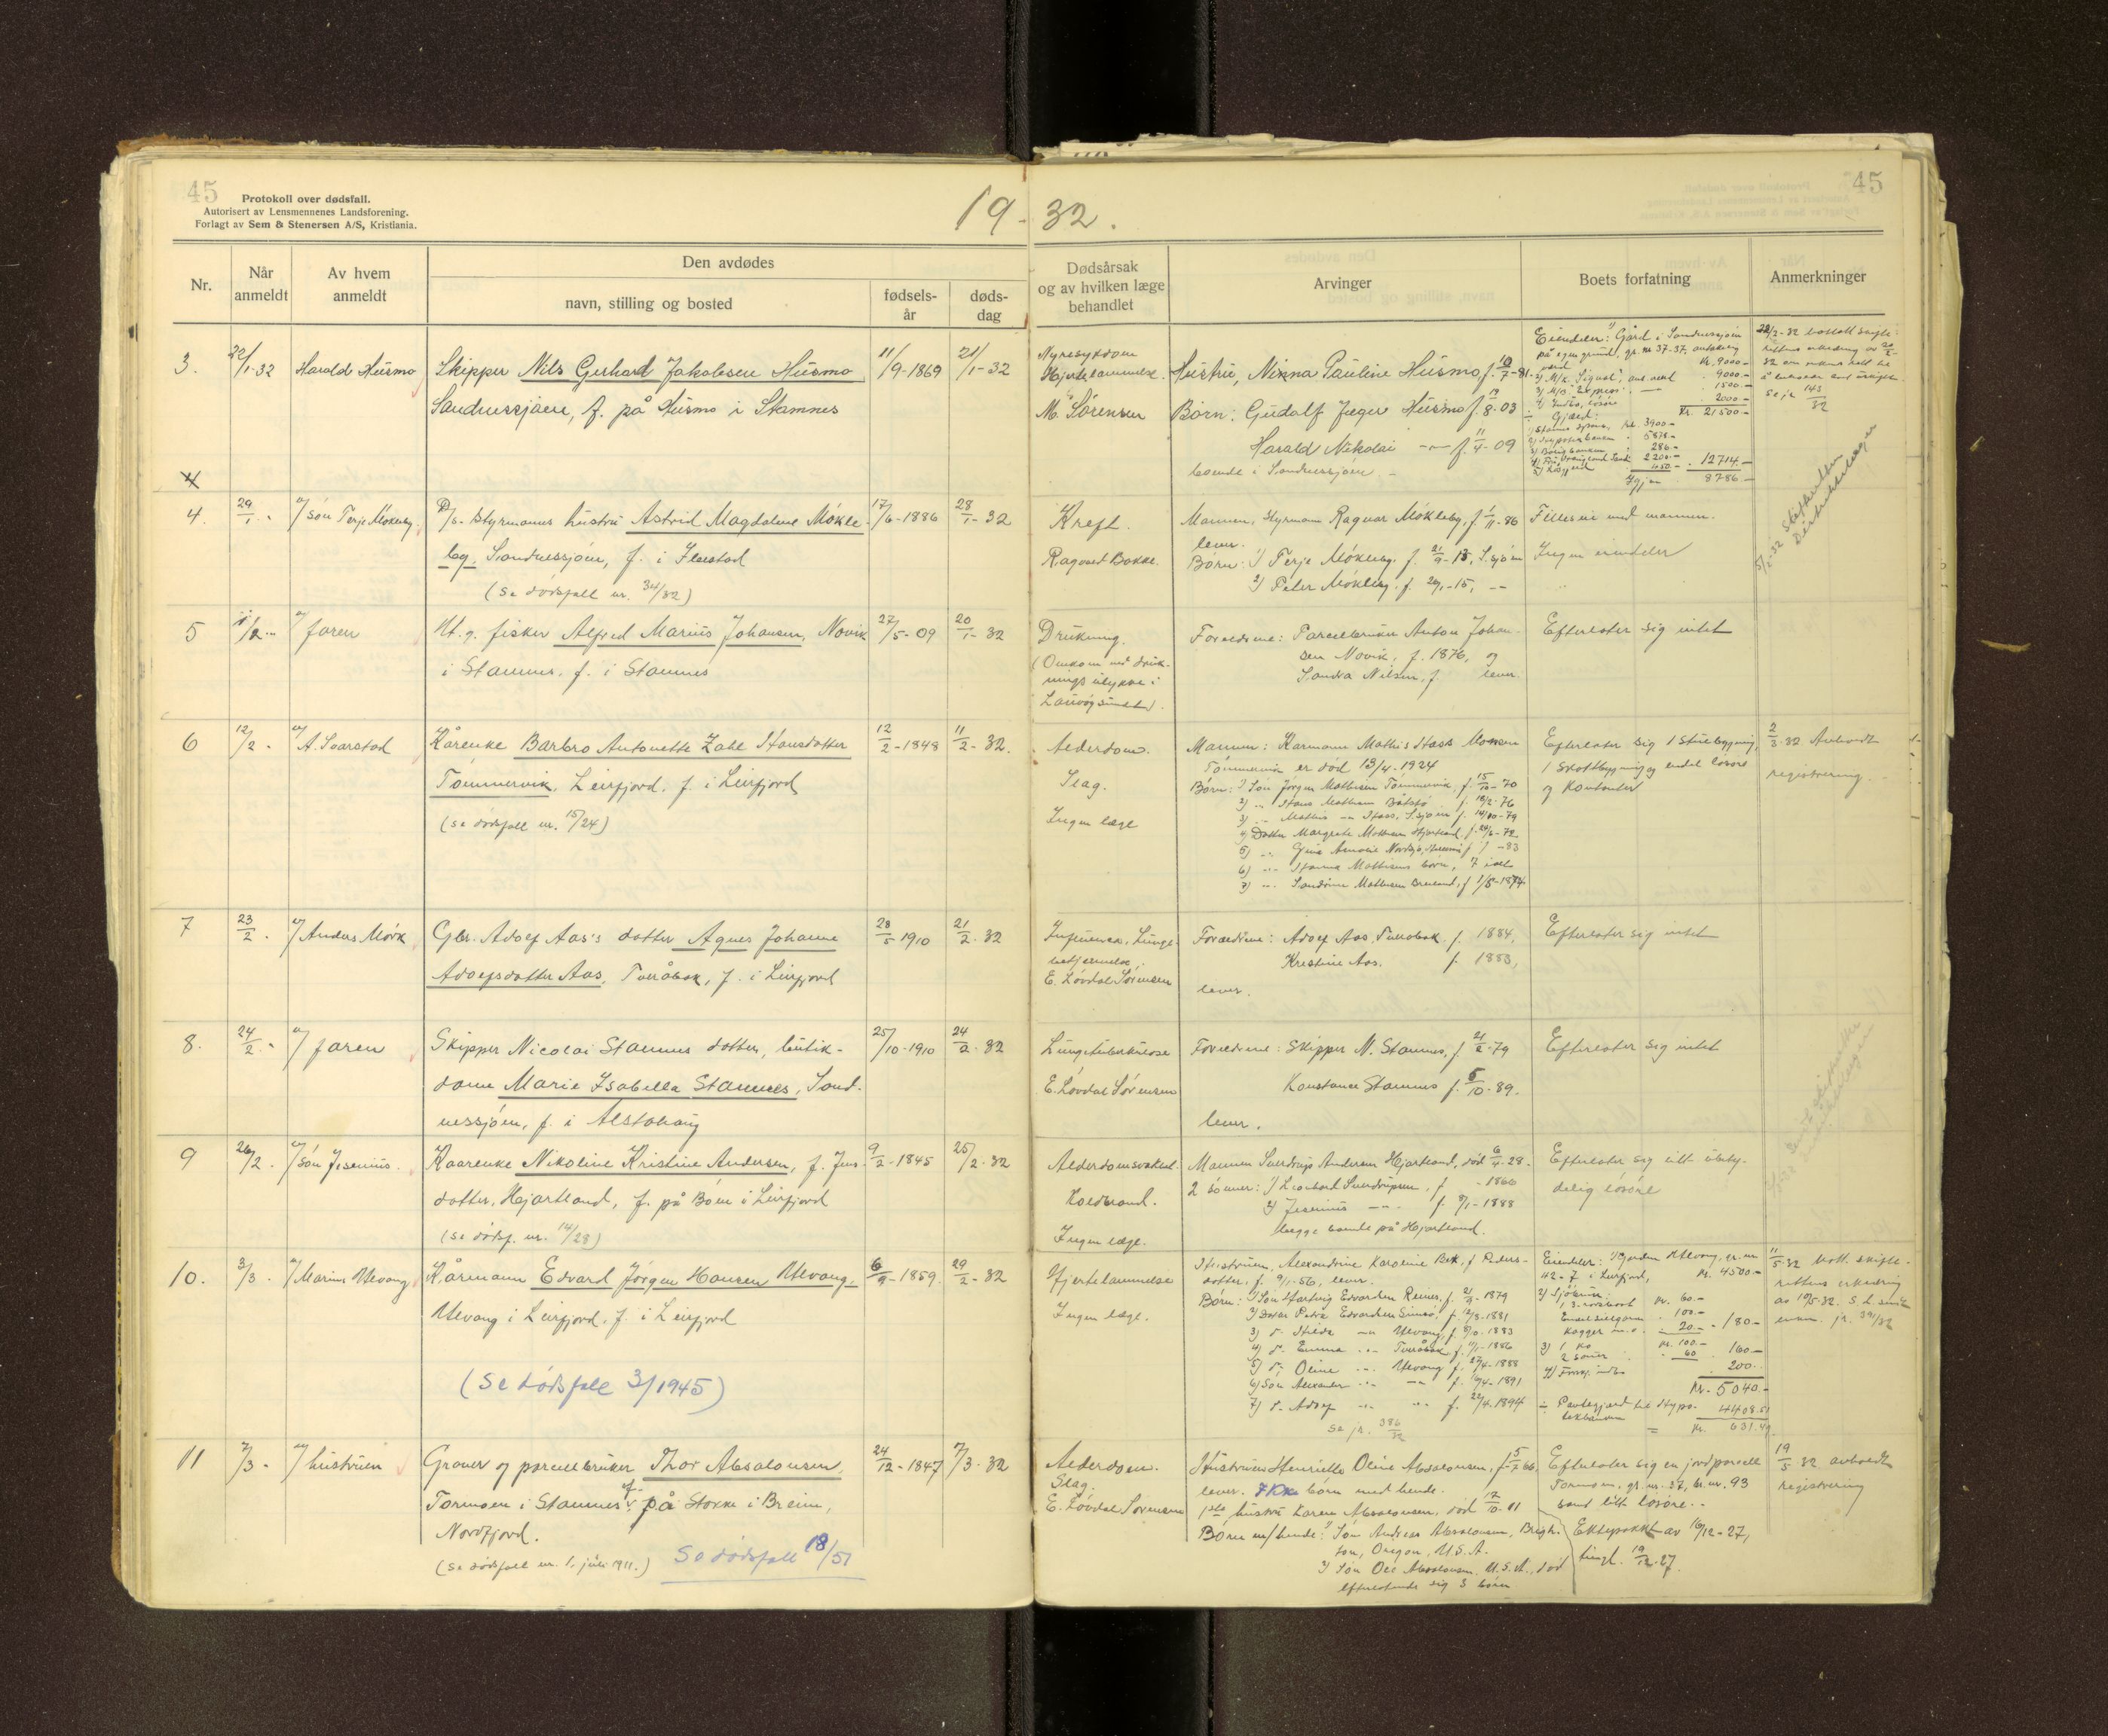 45
Protokoll over dødsfall.
Autorisert av Lensmennenes Landsforening.
Forlagt av Sem & Stenersen A/S, Kristiania.
19-32.
45
Nr.
Når anmeldt
Av hvem anmeldt
Den avdødes
navn, stilling og bosted
fødsels-år
døds-dag
Dødsårsak og av hvilken læge behandlet
Arvinger
Boets forfatning
Anmerkninger
3. 22/1-32 Harald Husmo Skipper Nils Gerhard Jakobsen Husmo 11/9-1869 21/1-32
Sandnessjøen, f. på Husmo i Stamnes
Nyresykdom
Hjertelammelse
M. Sørensen
Hustru, Ninna Pauline Husmo, f. 10/7-81
Børn: Gudolf Jæger Husmo f. 19/8-03
Harald Nikolai —"— f. 11/4-09
boende i Sandnessjøen
Eiendeler: 1) Gård i Sandnessjøen
på egen grund, gr. nr 37-37, antakelig
verd Kr. 9000-
2) M/k. "Signal", ant. verd 9000-
1500-
4) Indbo, løsøre 2000-
Kr. 21500-
Gjæld:
kr. 3900-
5878-
286-
2200-
450- 12714-
Igjen 8786-
143/32
4. 29/1 - v/ søn Terje Møkleby D/s. styrmanns hustru Astrid Magdalene Møkle- 17/6-1886 28/1-32
by, Sandnessjøen, f. i
(Se dødsfall nr. 34/32)
Kreft.
Ragnvald Bakke.
Mannen, styrmann Ragnar Møkleby, f. 1/11-86
lever.
Børn: 1) Terje Møkleby. f. 21/9-13, S.sjøen
2) Peter Møkleby. f. 20/1-15, —"—
Fælleseie med mannen.
Ingen eiendeler
5 1/2- v/ faren Ut. g. fisker Alfred Marius Johansen, Novik 27/5-09 20/1-32
i Stamnes. f. i Stamnes
Drukning.
(Omkom ved druk-
nings ulykke i
Forældrene: Parselbruker Anton Johan-
sen Novik, f. 1876, og
Sandra Nilsen, f. lever.
Efterlater sig intet
6 12/2 - v/ A. Svarstad Kårenke Barbro Antonette Zahl Hansdatter 12/2-1848 11/2-32.
Tømmervik, Leirfjord. f. i Leirfjord
(se dødsfall nr. 15/24)
Alderdom.
Slag.
Ingen læge
Mannen: Kårmann Mathis Hass Monsen
Tømmervik er død 13/4-1924
Børn: 1) Søn Jørgen Mathisen Tømmervik, f. 15/10-70
2) " Hans Mathisen f. 18/2-76
3) " Mathis — Hass, S.sjøen f. 14/10-79
4) Datter Margrete Mathisen Hjartland, f. 24/6-72
5) " f. -83
6) " Hanna Mathisens børn, 7 i alt
7) " Sandrine Mathisen f. 1/5-1874
Efterlater sig 1 stuebygning,
1 skottbygning og endel løsøre
og kontanter
2/3-32. Avholdt
registrering.
7 23/2 - v/ Anders Mørk Gbr. Adolf Aas's datter Agnes Johanne 28/5-1910 21/2-32
Adolfsdatter Aas, Tveråbak, f. i Leirfjord
Influensa, Lunge-
betjennelse.
E. Løvdal Sørensen
Forældrene: Adolf Aas, Tveråbak f. 1884,
Kristine Aas. f. 1883,
lever.
Efterlater sig intet
8. 24/2 - v/ faren Skipper Nicolai Stamnes datter, butik- 25/10-1910 24/2-32
dame Marie Isabella Stamnes, Sand-
nessjøen, f. i Alstahaug
Lungetuberkulose
E. Løvdal Sørensen
Forældrene: Skipper N. Stamnes, f. 21/2-79
Konstance Stamnes f. 5/10-89.
lever.
Efterlater sig intet
9 26/2 - v/ søn Jesenius. Kaarenke Nikoline Kristine Andersen, f. Jens- 9/2-1845 25/2-32
datter, Hjartland, f. på Bøen i Leirfjord
(se dødsf. nr. 14/28)
Alderdomssvakhet.
Koldbrand.
Ingen læge.
Mannen Sverdrup Andersen Hjartland, død 6/4-28.
2 sønner: 1) Leonhard Sverdrupsen, f. -1866
2) Jesenius —"— f. 9/1-1888
begge boende på Hjartland.
Efterlater sig litt ubety-
delig løsøre
10. 3/3 - v/ Marius Ulvang Kårmann Edvard Jørgen Hansen Ulvang- 6/9-1859. 29/2-32
Ulvang i Leirfjord, f. i Leirfjord
(Se dødsfall 3/1945)
Hjertelammelse
Ingen læge.
Hustruen, Alexandrine Karoline Bek, f. Peders-
datter, f. 9/1-56, lever.
Børn: 1) Søn Hartvig Edvardsen Reines, f. 2/9-1879
2) Datter Petra Edvardsen f. 12/8-1881
3) d. Hilda — Ulvang, f. 9/10-1883
4) d. Emma — Tveråbak, f. 11/1-1886
5) d. Oline — Ulvang f. 27/4-1888
6) Søn Alexander — f. 19/4-1891
7) s. Adolf — f. 22/4-1894
se jr. 386/32
Eiendeler: 1) Gården Ulvang, gr. nr.
42-7 i Leirfjord, kr. 4500-
kr. 60-
100-
20- - 180-
3) 1 ko kr. 100-
2 sauer 60 160-
200-
kr. 5040-
÷ Pantegjæld til Hypo-
tekbanken 4408.51
= kr. 631.49
11/5-32 mott. skifte-
rettens erklæring
av 10/5-32.
11 7/3 - v/ hustruen Graver og parselbruker Thor Absalonsen, 24/12-1847 7/3-32
Tormoen i Stamnes, f. på Storke i Breim,
Nordfjord.
(Se dødsfall nr. 1, juli 1911.) Se dødsfall 18/51
Alderdom.
Slag.
E. Løvdal Sørensen
Hustruen Henriette Oline Absalonsen, f. 5/7-66,
lever. Ikke børn med hende.
1ste hustru Karen Absalonsen, død 17/10-11
Børn m/ hende: 1) Søn Andreas Absalonsen, Brigh-
ton, Oregon, U.S.A.
2) Søn Ole Absalonsen, U.S.A., død
efterlatende sig 3 børn
Efterlater sig en jordparsell
Tormoen, gr. nr. 37, br. nr. 93
samt litt løsøre.
Ektepakt av 16/12-27,
tingl. 19/12-27.
19/5-32 avholdt
registrering